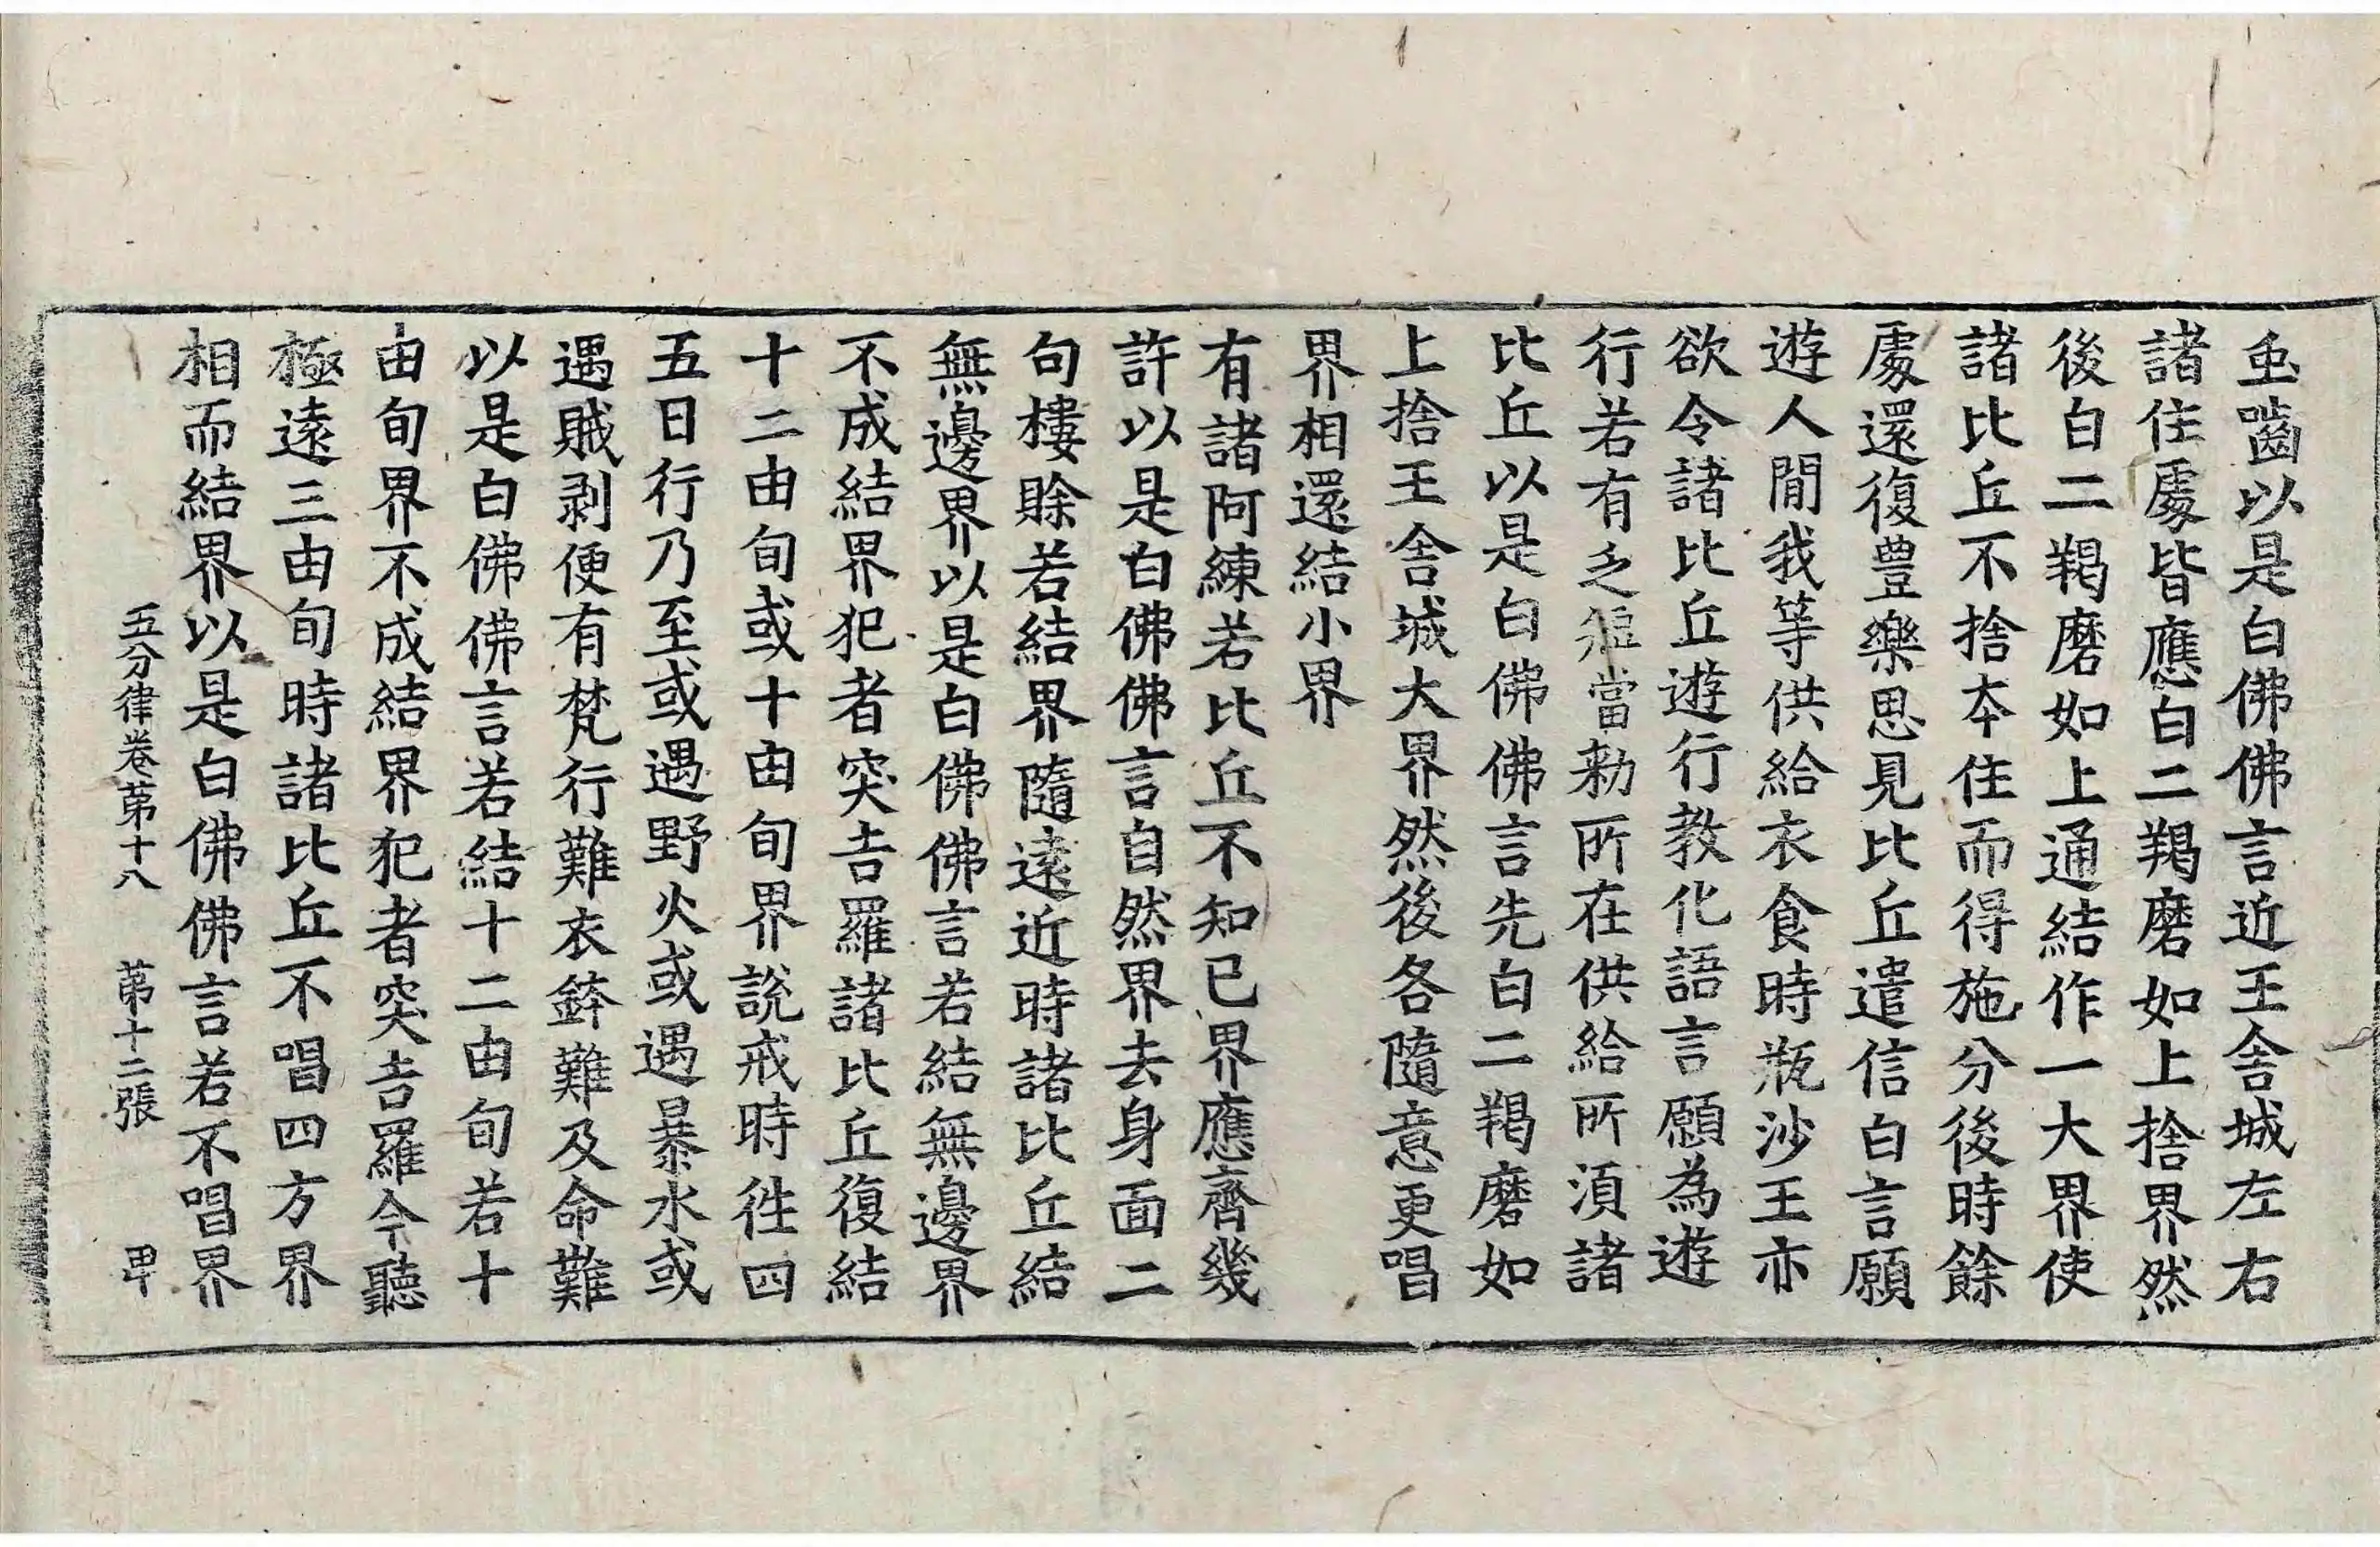 虫齧以是白佛佛言近王舍城左右
諸住處皆應白二羯磨如上捨界然
後白二羯磨如上通結作一大界使
諸比丘不捨本住而得施分後時餘
處還復豊樂思見比丘遣信白言願
遊人閒我等供給衣食時瓶沙王亦
欲令諸比丘遊行教化語言願為遊
行若有乏短當勑所在供給所湏諸
比丘以是白佛佛言先白二羯磨如
上捨王舍城大界然後各隨意更唱
界相還結小界
有諸阿練若比丘不知已界應齊幾
許以是白佛佛言自然界去身面二
句樓賖若結界隨遠近時諸比丘結
無邊界以是白佛佛言若結無邊界
不成結界犯者突吉羅諸比丘復結
十二由旬或十由旬界說戒時徃四
五日行乃至或遇野火或遇暴水或
遇賊剥便有梵行難衣鉢難及命難
以是白佛佛言若結十二由旬若十
由旬界不成結界犯者突吉羅今聽
極遠三由旬時諸比丘不唱四方界
相而結界以是白佛佛言若不唱界
五分律卷苐十八 苐十二張 甲